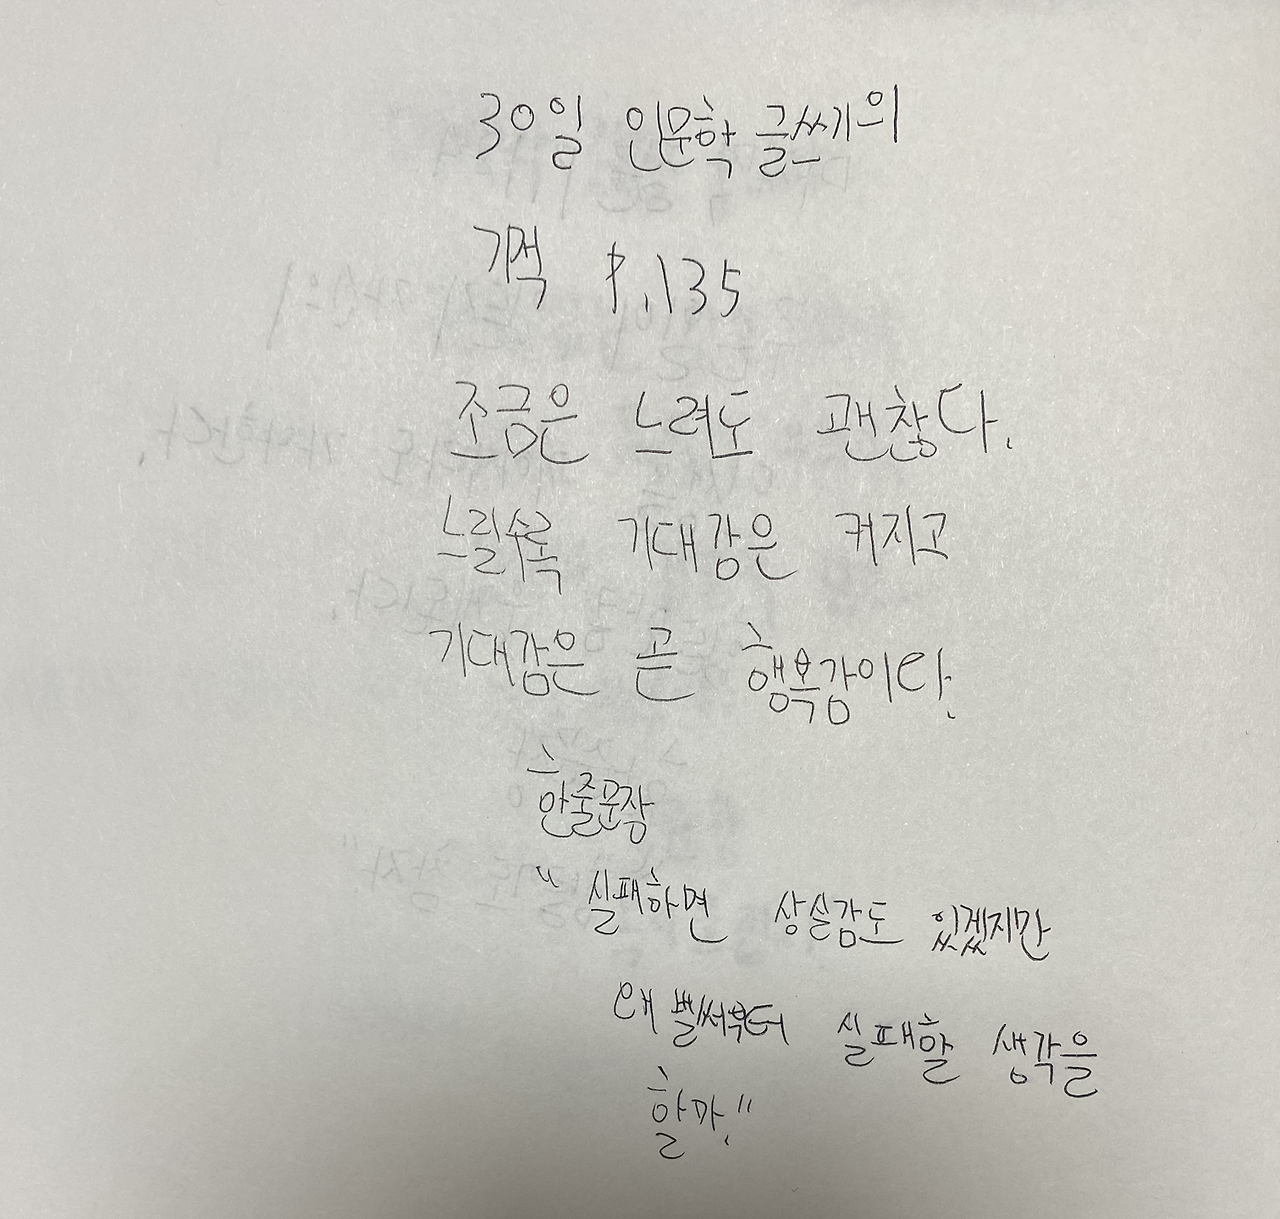 30일 인문학 글쓰기의
기적 P.135
조금은 느려도 괜찮다.
느릴수록 기대감은 커지고
기대감은 곧 행복감이다.
한줄문장
"실패하면 상실감도 있겠지만
왜 벌써부터 실패할 생각을
할까."